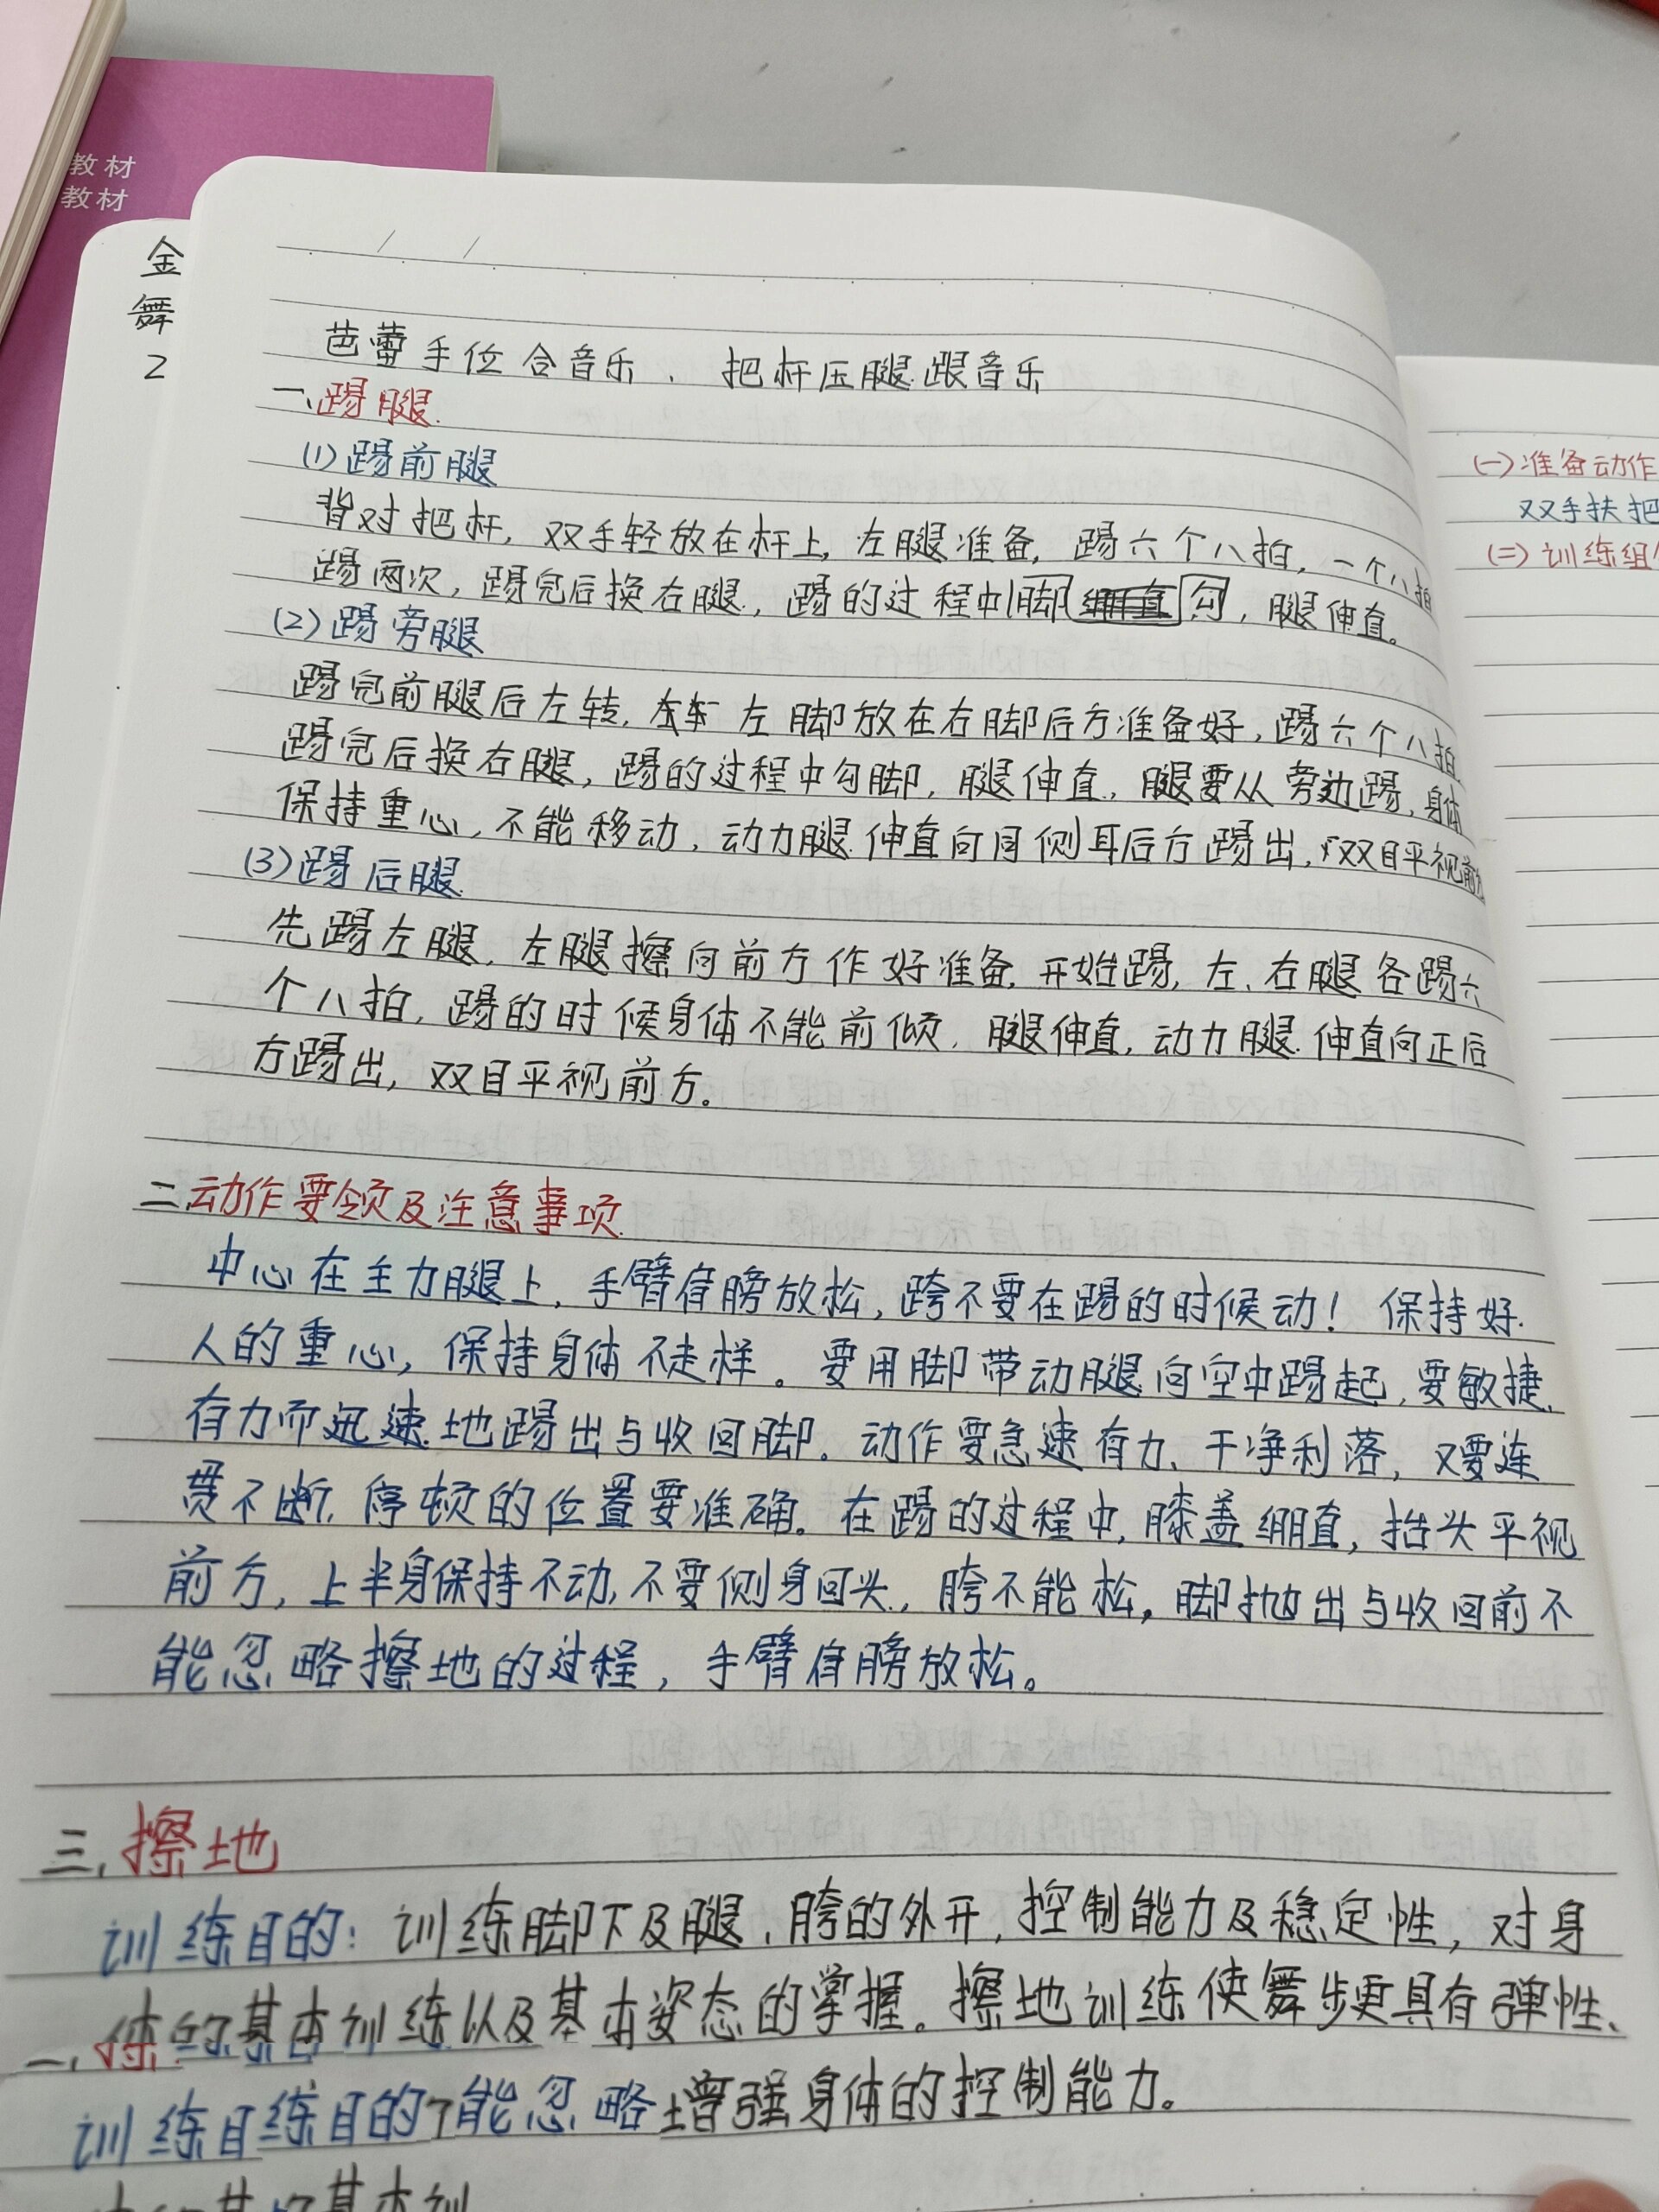 教材
教材
金
舞
2
芭蕾手位合音乐、把杆压腿跟音乐
一、踢腿
(1)踢前腿
背对把杆,双手轻放在杆上,左腿准备,踢六个八拍,一个八拍
踢两次,踢完后换右腿,踢的过程中脚勾,腿伸直。
(2)踢旁腿
踢完前腿后左转,左脚放在右脚后方准备好,踢六个八拍
踢完后换右腿,踢的过程中勾脚,腿伸直,腿要从旁边踢,身体
保持重心,不能移动,动力腿伸直向同侧耳后方踢出,双目平视前方
(3)踢后腿
先踢左腿,左腿擦向前方作好准备,开始踢,左、右腿各踢六
个八拍,踢的时候身体不能前倾,腿伸直,动力腿伸直向正后
方踢出,双目平视前方。
二.动作要领及注意事项
中心在主力腿上,手臂肩膀放松,跨不要在踢的时候动!保持好
人的重心,保持身体不走样。要用脚带动腿向空中踢起,要敏捷、
有力而迅速地踢出与收回脚。动作要急速有力、干净利落,又要连
贯不断,停顿的位置要准确。在踢的过程中,膝盖绷直,抬头平视
前方,上半身保持不动,不要侧身回头,胯不能松,脚抛出与收回前不
能忽略擦地的过程,手臂肩膀放松。
三.擦地
训练目的:训练脚下及腿、胯的外开,控制能力及稳定性,对身
体的基本训练以及基本姿态的掌握。擦地训练使舞步更具有弹性、
训练目练目的了能忽略增强身体的控制能力。
(一)准备动作
双手扶把
(二)训练组